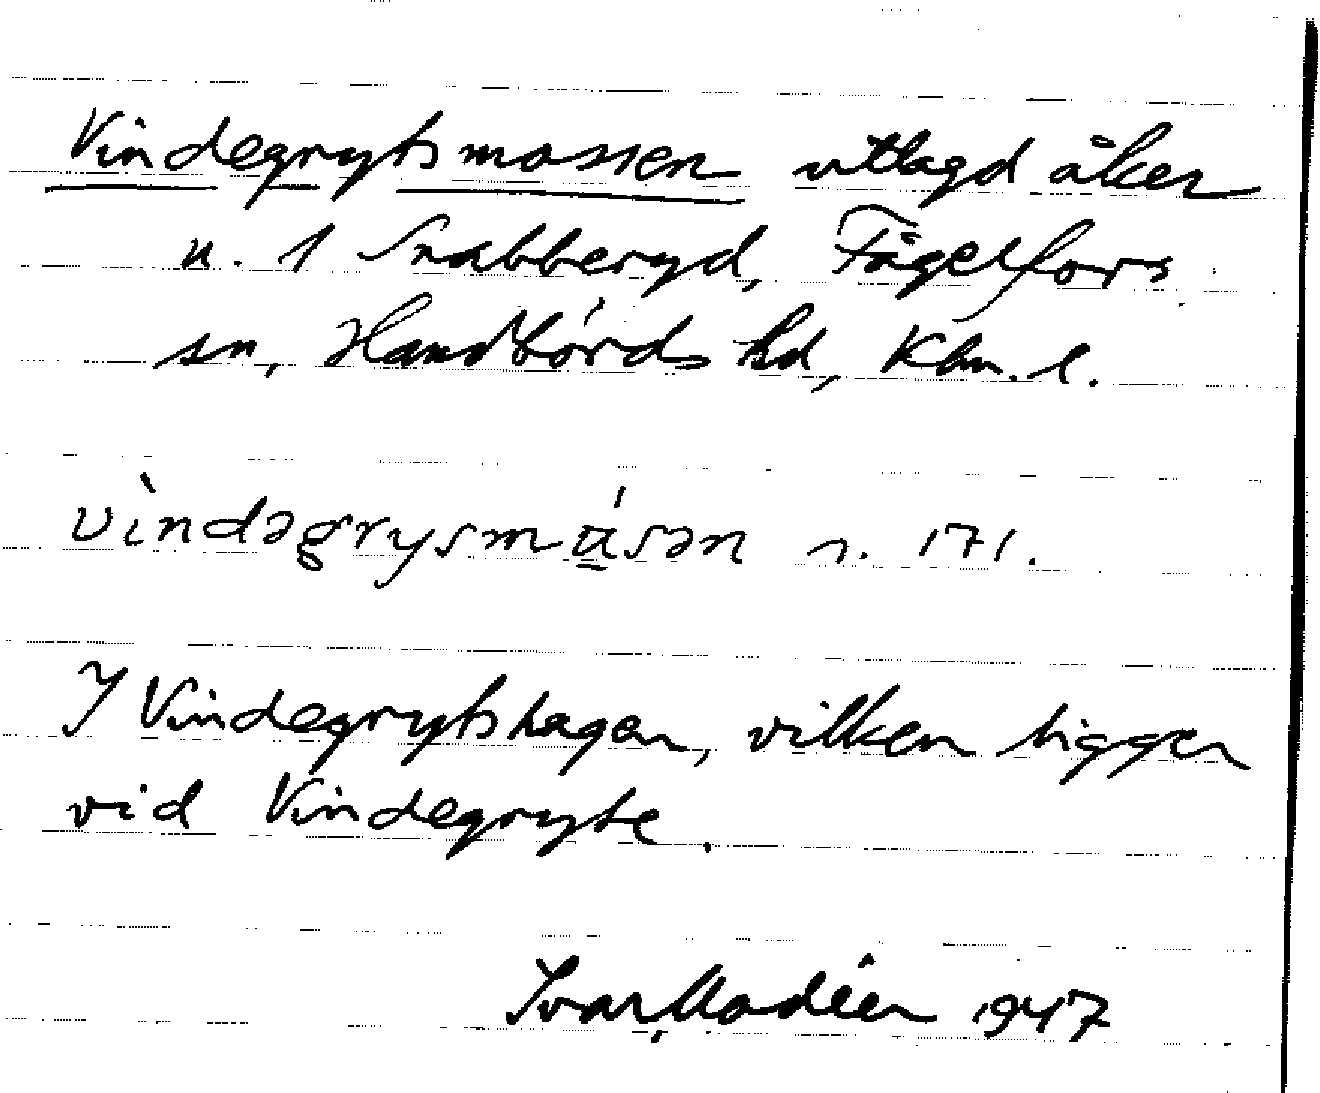 Vindegrytsmossen utlagd åker
u. 1 Snabberyd, Fågelfors
sn, Handbörds hd, Kbm. l.
vìndəgrysmá̱sən n. 171.
I Vindegrytshagen, vilken ligger
vid Vindegryte.
Ivar Modéer 1947